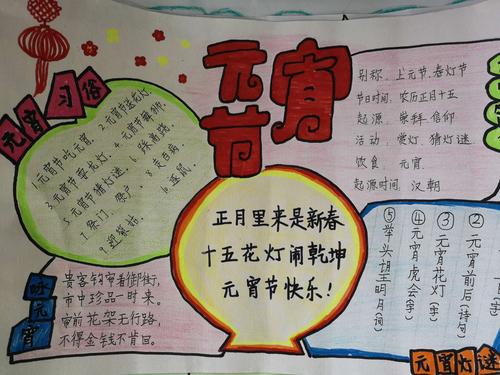 元宵节
元宵习俗
1.元宵节吃元宵.
2.元宵节送花灯.
3.元宵节耍龙灯.
4.元宵节舞狮.
5.元宵节猜灯谜
6.踩高跷.
7.祭门、祭户
8.走百病
9.迎紫姑.
10.逐鼠.
别称.上元节.春灯节
节日时间.农历正月十五
起源.
活动.赏灯.猜灯谜
饮食 元宵
起源时间.汉朝
正月里来是新春
十五花灯闹乾坤
元宵节快乐！
咏元宵
贵客钩帘看御街，
市中珍品一时来。
帘前花架无行路，
不得金钱不肯回。
②元宵前后(诗句)
③元宵花灯(字)
④元宵虎会(字)
⑤举头望明月(词)
元宵灯谜